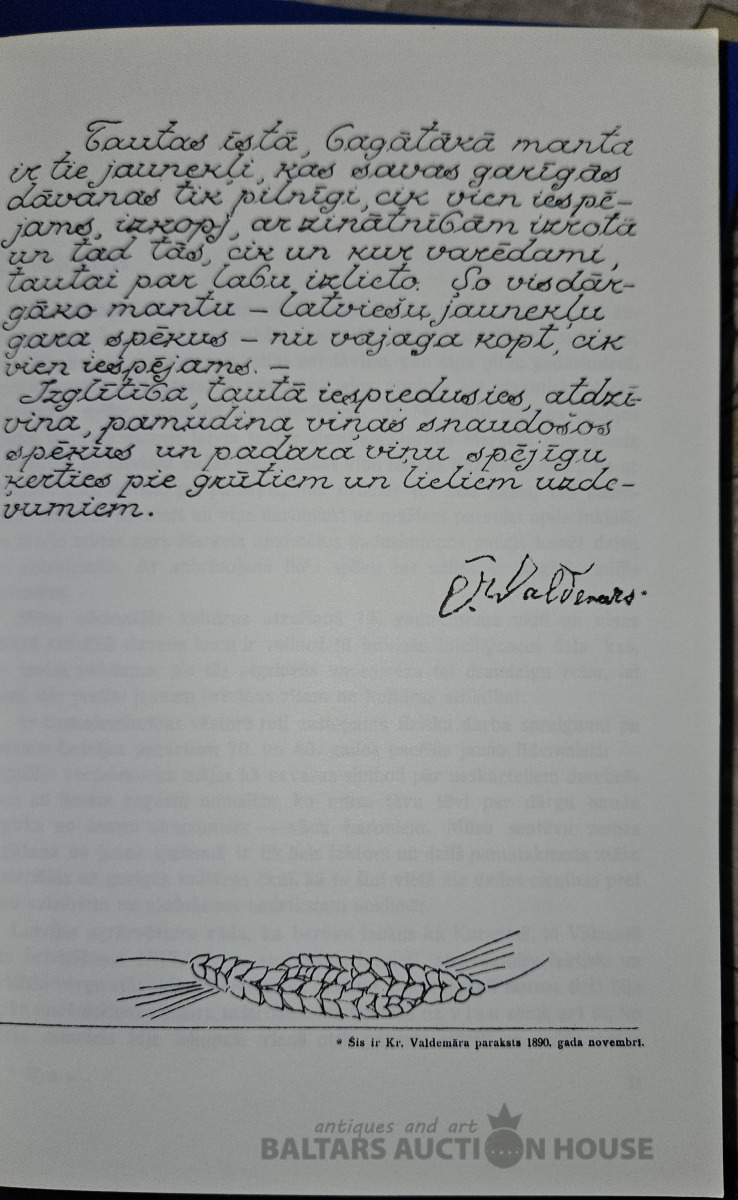 Tautas īstā, bagātākā manta
ir tie jaunekļi, kas savas garīgās
dāvanas tik pilnīgi, cik vien iespē-
jams, izkopj, ar zinātnībām izrotā
un tad tās, cik un kur varēdami,
tautai par labu izlieto. Šo visdār-
gāko mantu – latviešu jaunekļu
gara spēkus – nu vajaga kopt, cik
vien iespējams. –
Izglītība, tautā iespiedusies, atdzī-
vina, pamudina viņas snaudošos
spēkus un padara viņu spējīgu
ķerties pie grūtiem un lieliem uzde-
vumiem.
Kr. Valdemārs*
* Šis ir Kr. Valdemāra paraksts 1890. gada novembrī.
antiques and art
BALTARS AUCTION HOUSE